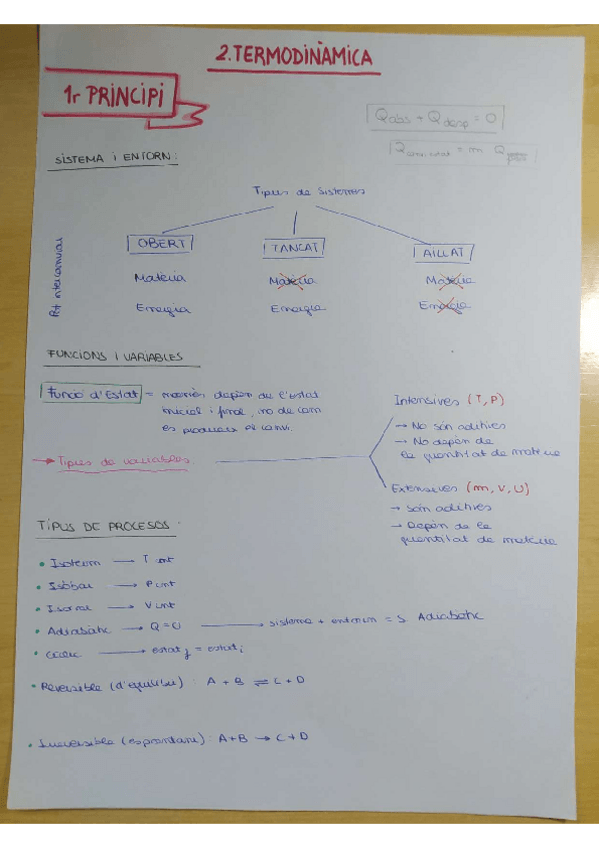 2. TERMODINÀMICA
1r PRINCIPI
Qabs + Qdesp = 0
= m Q
SISTEMA i ENTORN:
Tipus de sistemes
OBERT
TANCAT
AILLAT
Pot intercanviar
Matèria
Matèria
Matèria
Energia
Energia
Energia
FUNCIONS I VARIABLES
Funció d'Estat = només depèn de l'estat
inicial i final, no de com
es produeix el canvi.
→ Tipus de variables
Intensives (T, P)
→ No són aditives
→ No depèn de
la quantitat de matèria
Extensives (m, V, U)
→ són aditives
→ Depèn de la
quantitat de matèria
TIPUS DE PROCESOS:
• Isoterm → T cnt
• Isòbar → P cnt
• Isocor → V cnt
• Adiabàtic → Q=0 → sistema + entorn = S Adiabàtic
• Cíclic → estat f = estat i
• Reversible (d'equilibri): A + B ⇌ C + D
• Irreversible (espontani): A+B → C+D